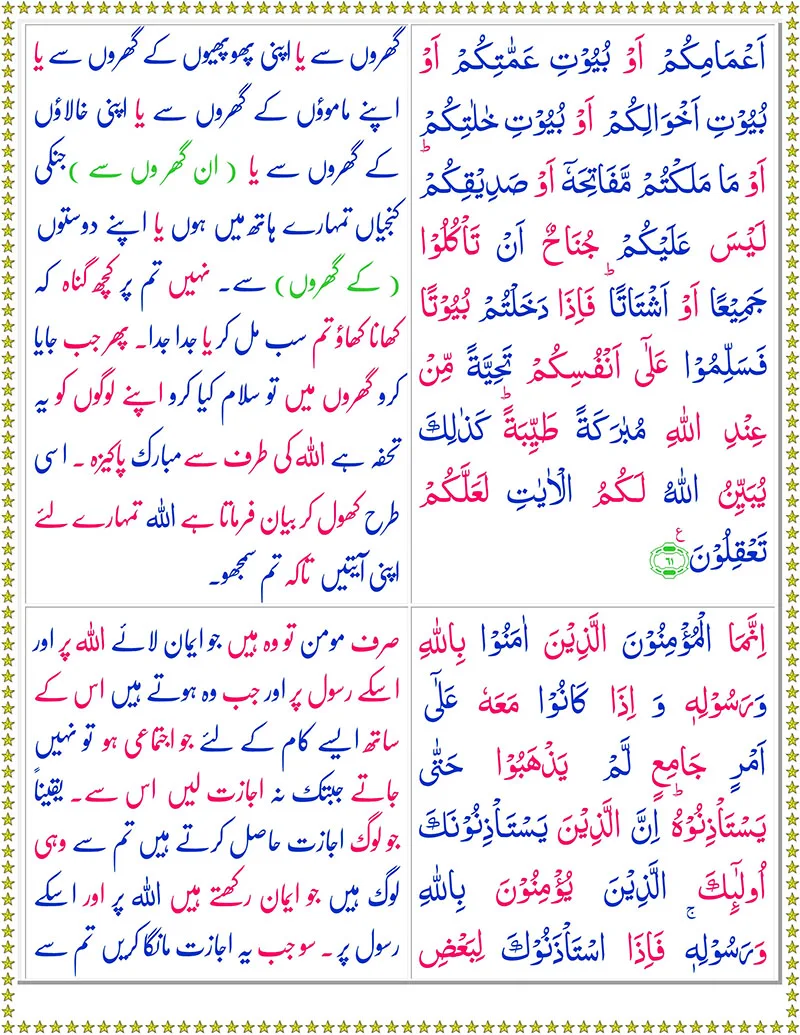 اَعْمَامِكُمْ اَوْ بُيُوْتِ عَمّٰتِكُمْ اَوْ
بُيُوْتِ اَخْوَالِكُمْ اَوْ بُيُوْتِ خٰلٰتِكُمْ
اَوْ مَا مَلَكْتُمْ مَّفَاتِحَهٗۤ اَوْ صَدِيْقِكُمْ ؕ
لَيْسَ عَلَيْكُمْ جُنَاحٌ اَنْ تَاْكُلُوْا
جَمِيْعًا اَوْ اَشْتَاتًا ؕ فَاِذَا دَخَلْتُمْ بُيُوْتًا
فَسَلِّمُوْا عَلٰۤى اَنْفُسِكُمْ تَحِيَّةً مِّنْ
عِنْدِ اللّٰهِ مُبٰرَكَةً طَيِّبَةً ؕ كَذٰلِكَ
يُبَيِّنُ اللّٰهُ لَكُمُ الْاٰيٰتِ لَعَلَّكُمْ
تَعْقِلُوْنَ ع ٦١
گھروں سے یا اپنی پھوپھیوں کے گھروں سے یا
اپنے ماموؤں کے گھروں سے یا اپنی خالاؤں
کے گھروں سے یا ( ان گھر وں سے ) جنکی
کنجیاں تمہارے ہاتھ میں ہوں یا اپنے دوستوں
( کے گھروں) سے۔ نہیں تم پر کچھ گناہ کہ
کھانا کھاؤ تم سب مل کر یا جدا جدا۔ پھر جب جایا
کرو گھروں میں تو سلام کیا کرو اپنے لوگوں کو یہ
تحفہ ہے اللہ کی طرف سے مبارک پاکیزہ ۔ اسی
طرح کھول کر بیان فرماتا ہے اللہ تمہارے لئے
اپنی آیتیں تاکہ تم سمجھو۔
اِنَّمَا الْمُؤْمِنُوْنَ الَّذِيْنَ اٰمَنُوْا بِاللّٰهِ
وَرَسُوْلِهٖ وَ اِذَا كَانُوْا مَعَهٗ عَلٰۤى
اَمْرٍ جَامِعٍ لَّمْ يَذْهَبُوْا حَتّٰى
يَسْتَاْذِنُوْهُ ؕ اِنَّ الَّذِيْنَ يَسْتَاْذِنُوْنَكَ
اُولٰٓئِكَ الَّذِيْنَ يُؤْمِنُوْنَ بِاللّٰهِ
وَرَسُوْلِهٖ ۚ فَاِذَا اسْتَاْذَنُوْكَ لِبَعْضِ
صرف مومن تو وہ ہیں جو ایمان لائے اللہ پر اور
اسکے رسول پر اور جب وہ ہوتے ہیں اس کے
ساتھ ایسے کام کے لئے جو اجتماعی ہو تو نہیں
جاتے جبتک نہ اجازت لیں اس سے۔ یقیناً
جو لوگ اجازت حاصل کرتے ہیں تم سے وہی
لوگ ہیں جو ایمان رکھتے ہیں اللہ پر اور اسکے
رسول پر ۔ سو جب یہ اجازت مانگا کریں تم سے